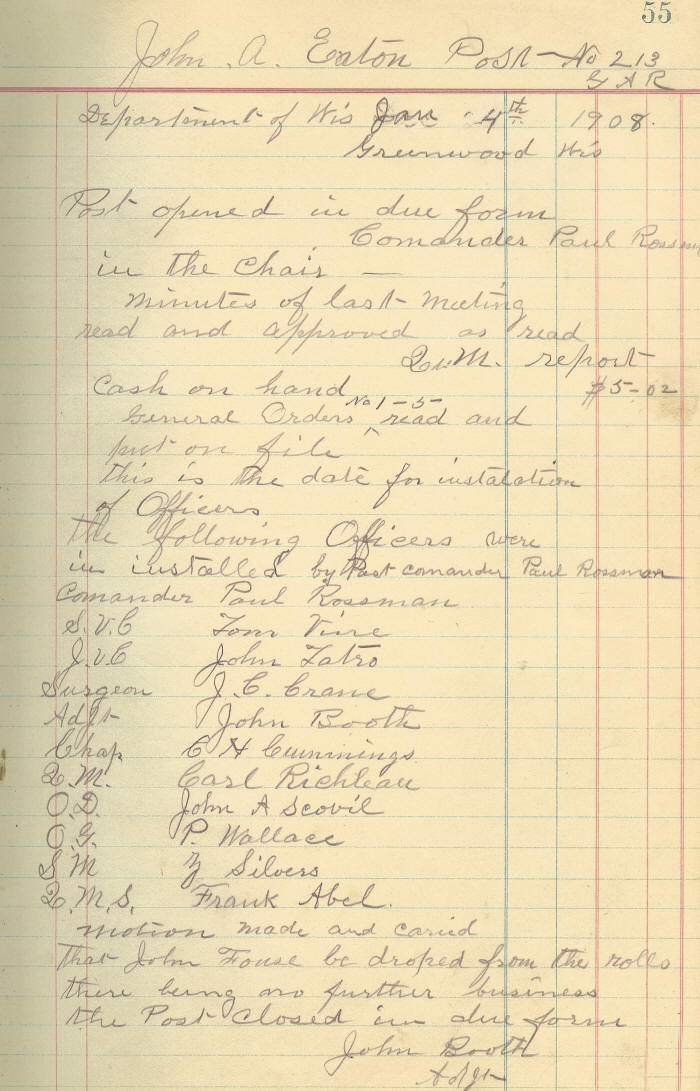 55
John A. Eaton Post No 213
G A R
Department of Wis Jan 4th 1908.
Greenwood Wis
Post opened in due form
Comander Paul Rossm
in the Chair —
minutes of last meeting
read and approved as read
Q.M. report
Cash on hand $5-02
General Orders No 1-5- read and
put on file
this is the date for instalation
of Officers
the following Officers were
in installed by Past comander Paul Rossman
Comander Paul Rossman
S.V.C Tom Vine
J.V.C John Tatro
Surgeon J.C. Crane
Adjt John Booth
Chap. C H Cummings.
Q.M. Carl Richleau
O.D. John A Scovil
O.G. P. Wallace
S M Silvers
Q.M.S. Frank Abel.
motion made and caried
that John Fouse be droped from the rolls
there being no further business
the Post Closed in due form
John Booth
Adjt